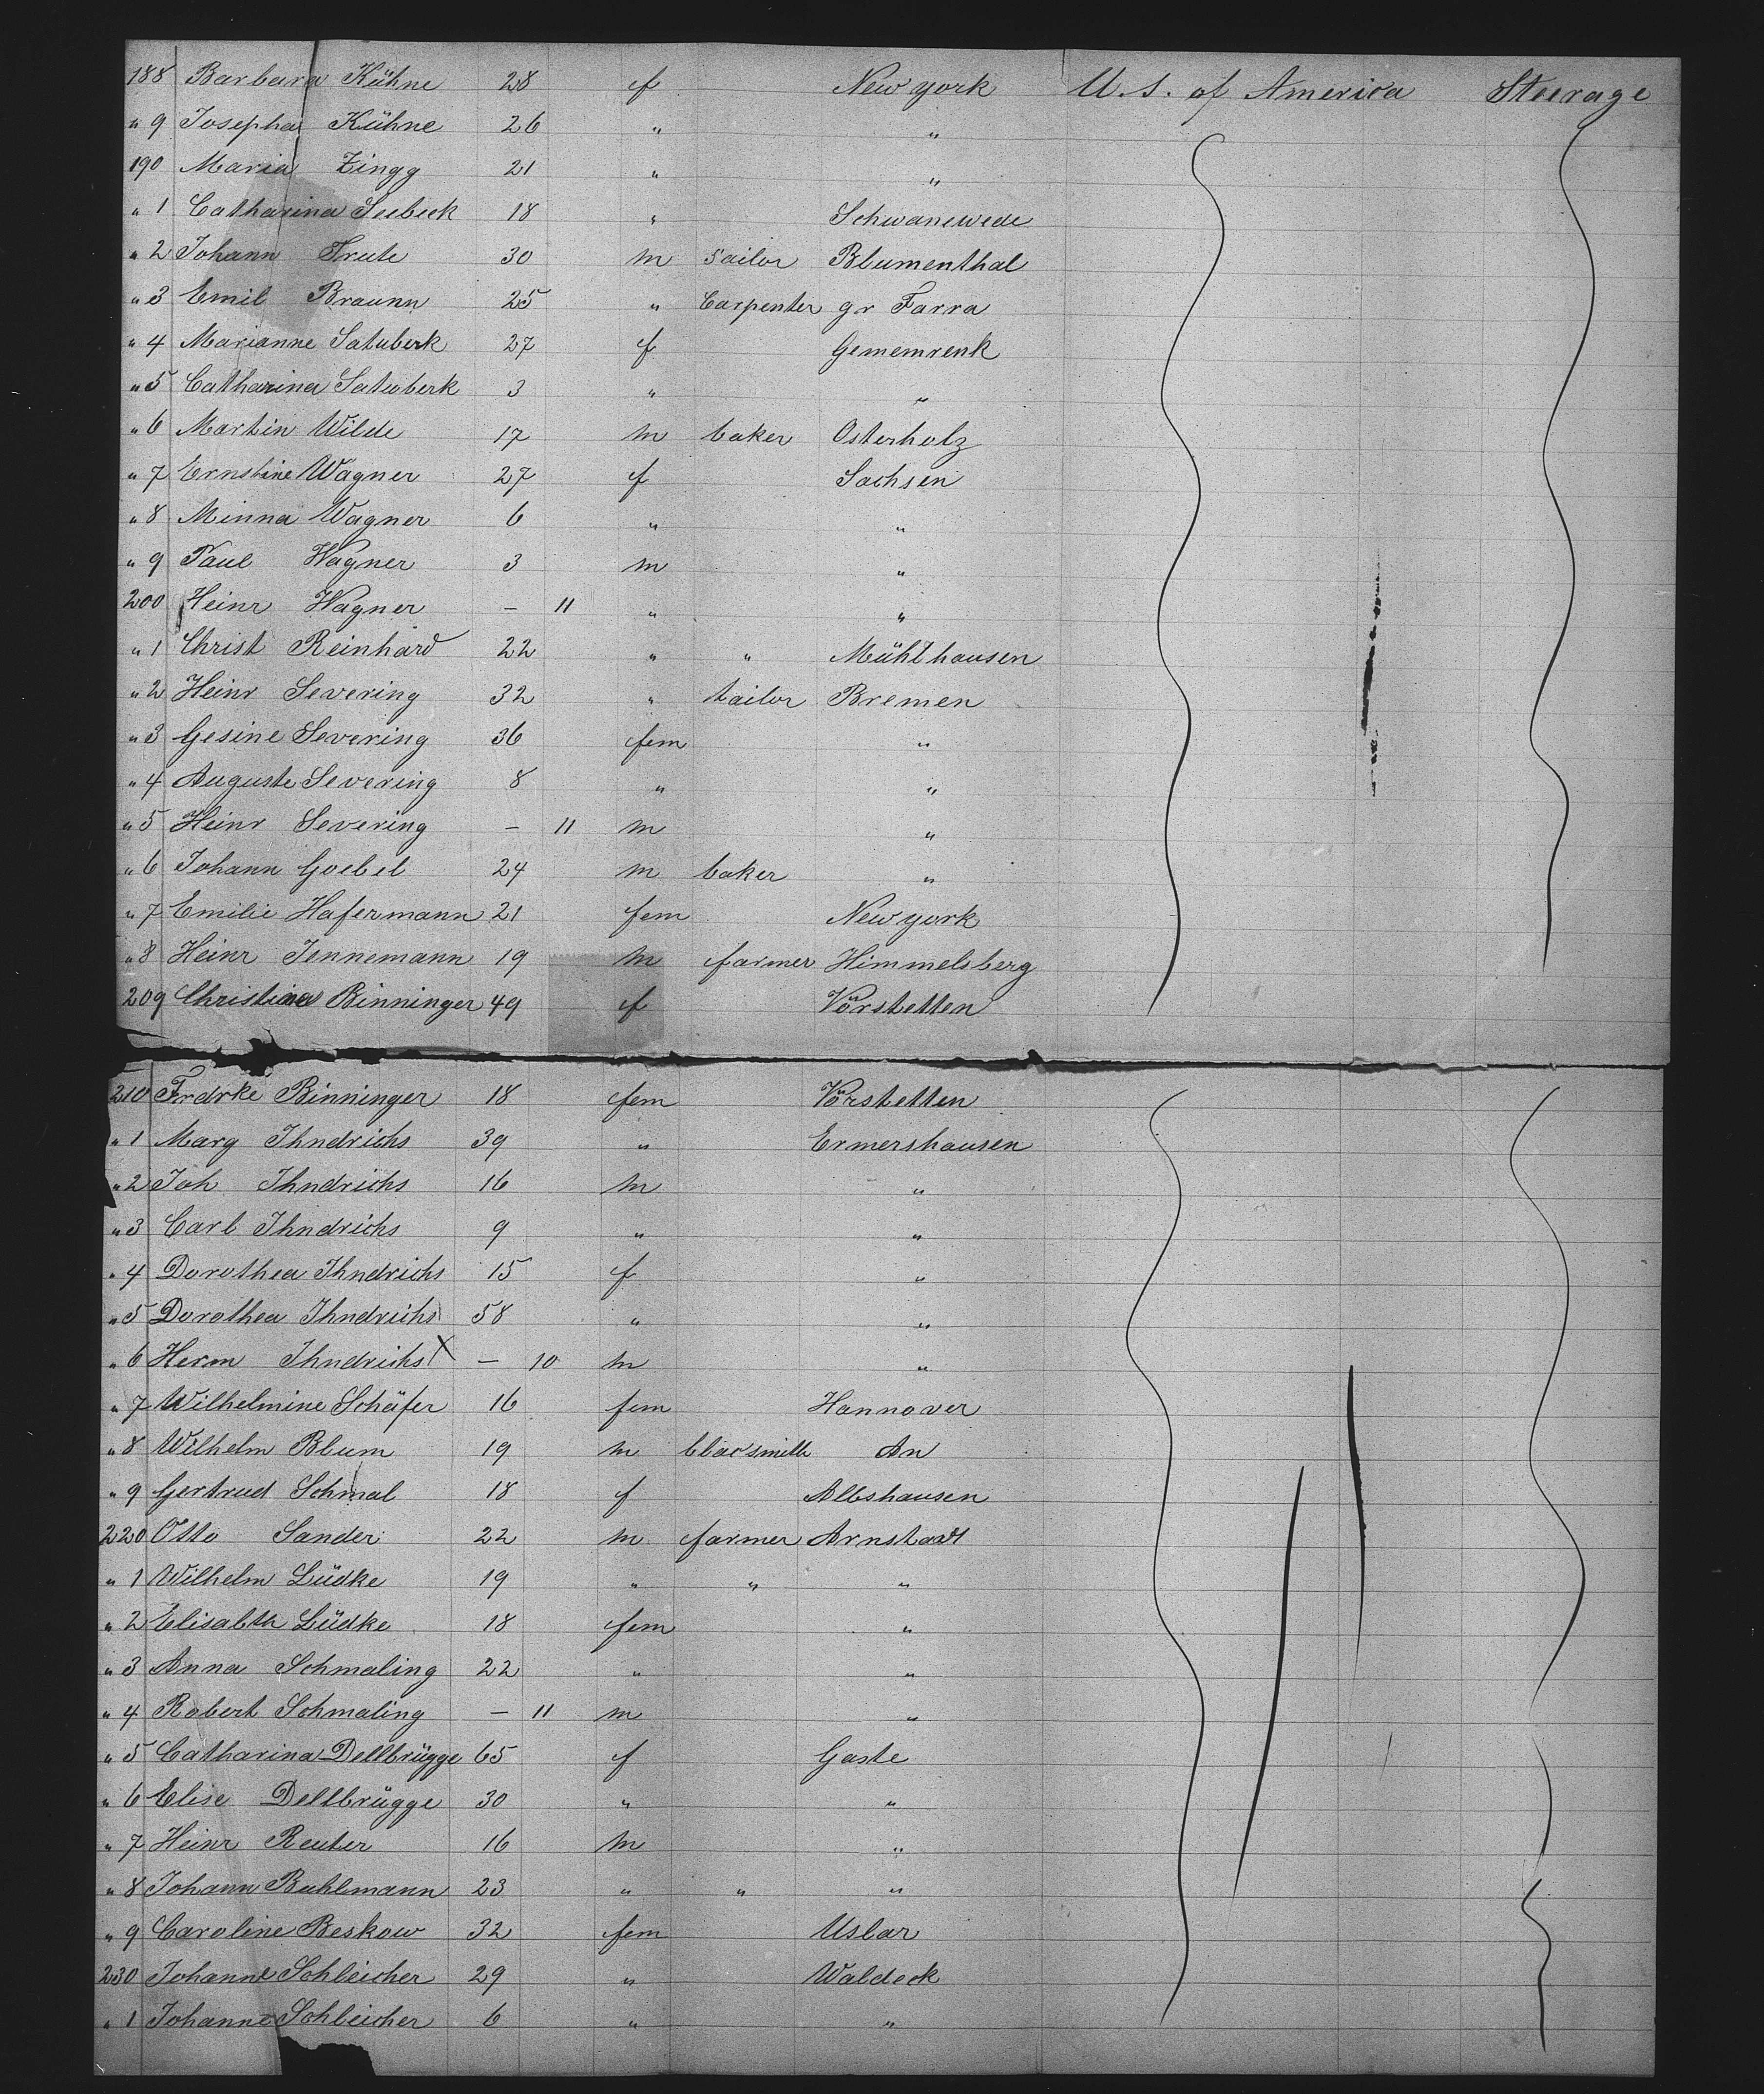 188 Barbara Kühne 28 f New york U. S. of America Steerage
" 9 Josepha Kühne 26 " "
190 Maria Zingg 21 " "
" 1 Catharina Seebeck 18 " Schwanewede
" 2 Johann Trute 30 m sailor Blumenthal
" 3 Emil Braunn 25 " Carpenter gr Farra
" 4 Marianne Satuberk 27 f Gememrenk
" 5 Catharina Satuberk 3 " "
" 6 Martin Wilde 17 m baker Osterholz
" 7 Ernstine Wagner 27 f Sachsen
" 8 Minna Wagner 6 " "
" 9 Paul Wagner 3 m "
200 Heinr Wagner – 11 " "
" 1 Christ Reinhard 22 " " Mühlhausen
" 2 Heinr Severing 32 " tailor Bremen
" 3 Gesine Severing 36 fem "
" 4 Auguste Severing 8 " "
" 5 Heinr Severing – 11 m "
" 6 Johann Goebel 24 m baker "
" 7 Emilie Hafermann 21 fem New york
" 8 Heinr Jennemann 19 m farmer Himmelsberg
209 Christina Binninger 49 f Vörstetten
210 Frdrke Binninger 18 fem Vörstetten
" 1 Marg Ihndrichs 39 " Ermershausen
" 2 Joh Ihndrichs 16 m "
" 3 Carl Ihndrichs 9 " "
" 4 Dorothea Ihndrichs 15 f "
" 5 Dorothea Ihndrichs 58 " "
" 6 Herm Ihndrichs X – 10 m "
" 7 Wilhelmine Schäfer 16 fem Hannover
" 8 Wilhelm Blum 19 m blacsmith An
" 9 Gertrud Schmal 18 f Albshausen
220 Otto Sander 22 m farmer Arnstadt
" 1 Wilhelm Lüdke 19 " " "
" 2 Elisabth Lüdke 18 fem "
" 3 Anna Schmaling 22 " "
" 4 Robert Schmaling – 11 m "
" 5 Catharina Dellbrügge 65 f Gaste
" 6 Elise Dellbrügge 30 " "
" 7 Heinr Reuter 16 m "
" 8 Johann Buhlmann 23 " " "
" 9 Caroline Beskow 32 fem Uslar
230 Johanne Schleicher 29 " Waldeck
" 1 Johanne Schleicher 6 " "